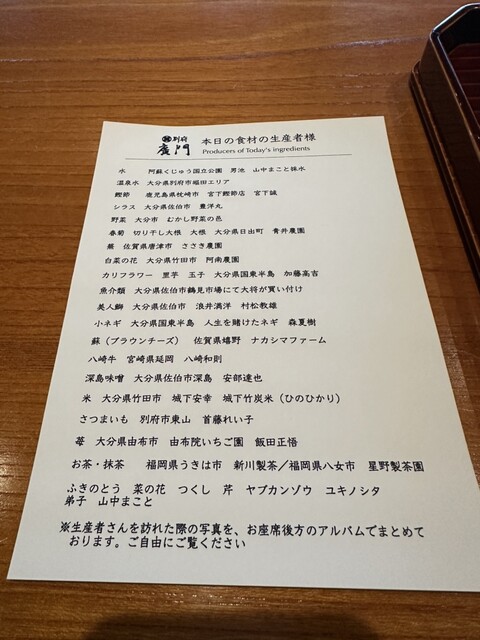 別府 廣門 本日の食材の生産者様
Producers of Today's ingredients
水 阿蘇くじゅう国立公園 男池 山中まこと採水
温泉水 大分県別府市堀田エリア
鰹節 鹿児島県枕崎市 宮下鰹節店 宮下誠
シラス 大分県佐伯市 豊洋丸
野菜 大分市 むかし野菜の邑
春菊 切り干し大根 大根 大分県日出町 青井農園
蕪 佐賀県唐津市 ささき農園
白菜の花 大分県竹田市 阿南農園
カリフラワー 里芋 玉子 大分県国東半島 加藤高吉
魚介類 大分県佐伯市鶴見市場にて大将が買い付け
美人鰤 大分県佐伯市 浪井満洋 村松教雄
小ネギ 大分県国東半島 人生を賭けたネギ 森夏樹
蘇（ブラウンチーズ） 佐賀県嬉野 ナカシマファーム
八崎牛 宮崎県延岡 八崎和則
深島味噌 大分県佐伯市深島 安部達也
米 大分県竹田市 城下安幸 城下竹炭米（ひのひかり）
さつまいも 別府市東山 首藤れい子
苺 大分県由布市 由布院いちご園 飯田正悟
お茶・抹茶 福岡県うきは市 新川製茶／福岡県八女市 星野製茶園
ふきのとう 菜の花 つくし 芹 ヤブカンゾウ ユキノシタ
弟子 山中まこと
※生産者さんを訪れた際の写真を、お座席後方のアルバムでまとめて
おります。ご自由にご覧ください